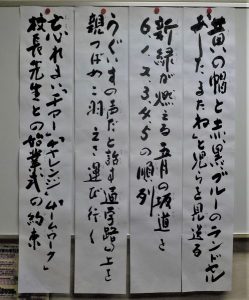 黄いろ帽と赤黒ブルーのランドセル
「あしたまたね」と児らを見送る
新緑が燃える五月の坂道を
6、1、2、3、4、5の順列
うぐいすの声だと話す通学路上を
親つばめ二羽えさ運び行く
忘れまい「チャレンジ」「チームワーク」
校長先生との始業式の約束